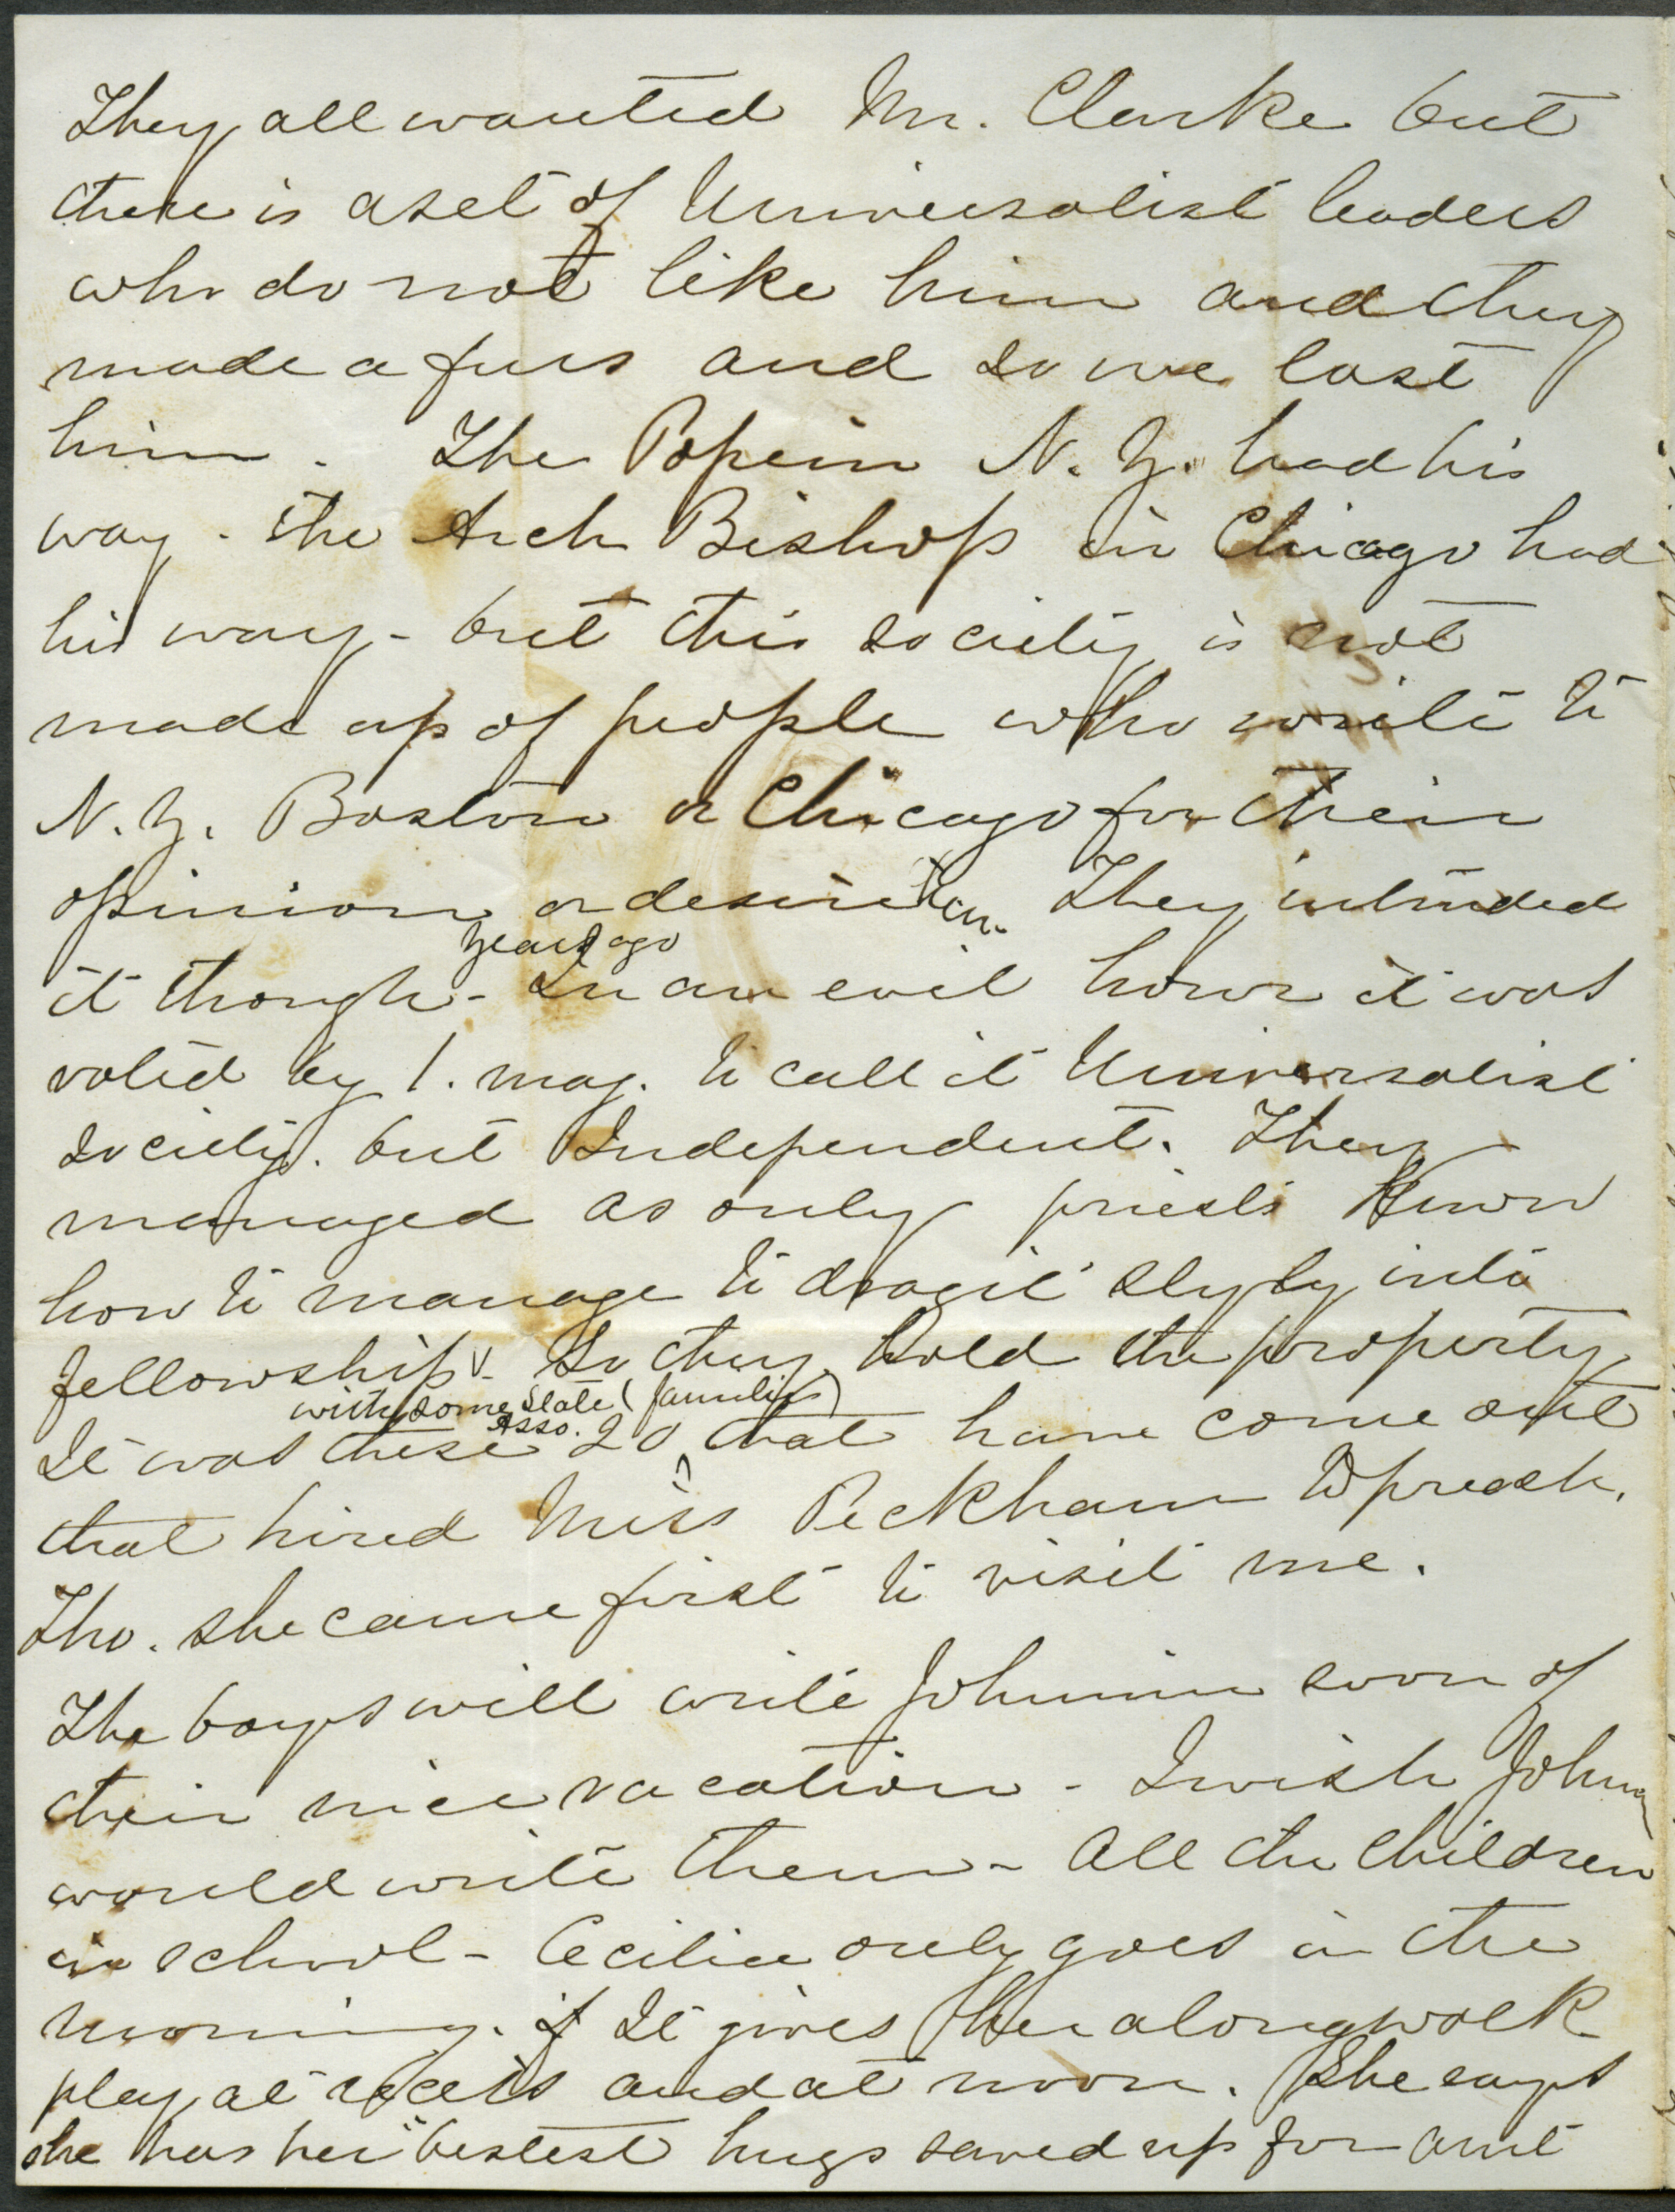 They all wanted Mr. Clarke but
there is a set of Universalist leaders
who do not like him and they
made a fuss and so we lost
him. The Pope in N. Y. had his
way. the Arch Bishop in Chicago had
his way - but this society is not
made up of people who write to
N. Y. Boston or Chicago for their
opinion or desire
They intended
years ago
it though - In an evil hour it was
voted by 1. maj. to call it Universalist
society. but Independent. They
managed as only priests know
how to manage to drag it slyly into
fellowship - So they hold the property
with some State (families)
Asso.
It was these 20 that have come out
that hired Miss Peckham to preach.
Tho. she came first to visit me.
The boys will write Johnnie soon of
their nice vacation - I wish Johnny
would write them - All the children
in school - Cecilia only goes in the
morning. It gives her a long walk
play at recess and at noon. She says
she has her "bestest hugs saved up for aunt